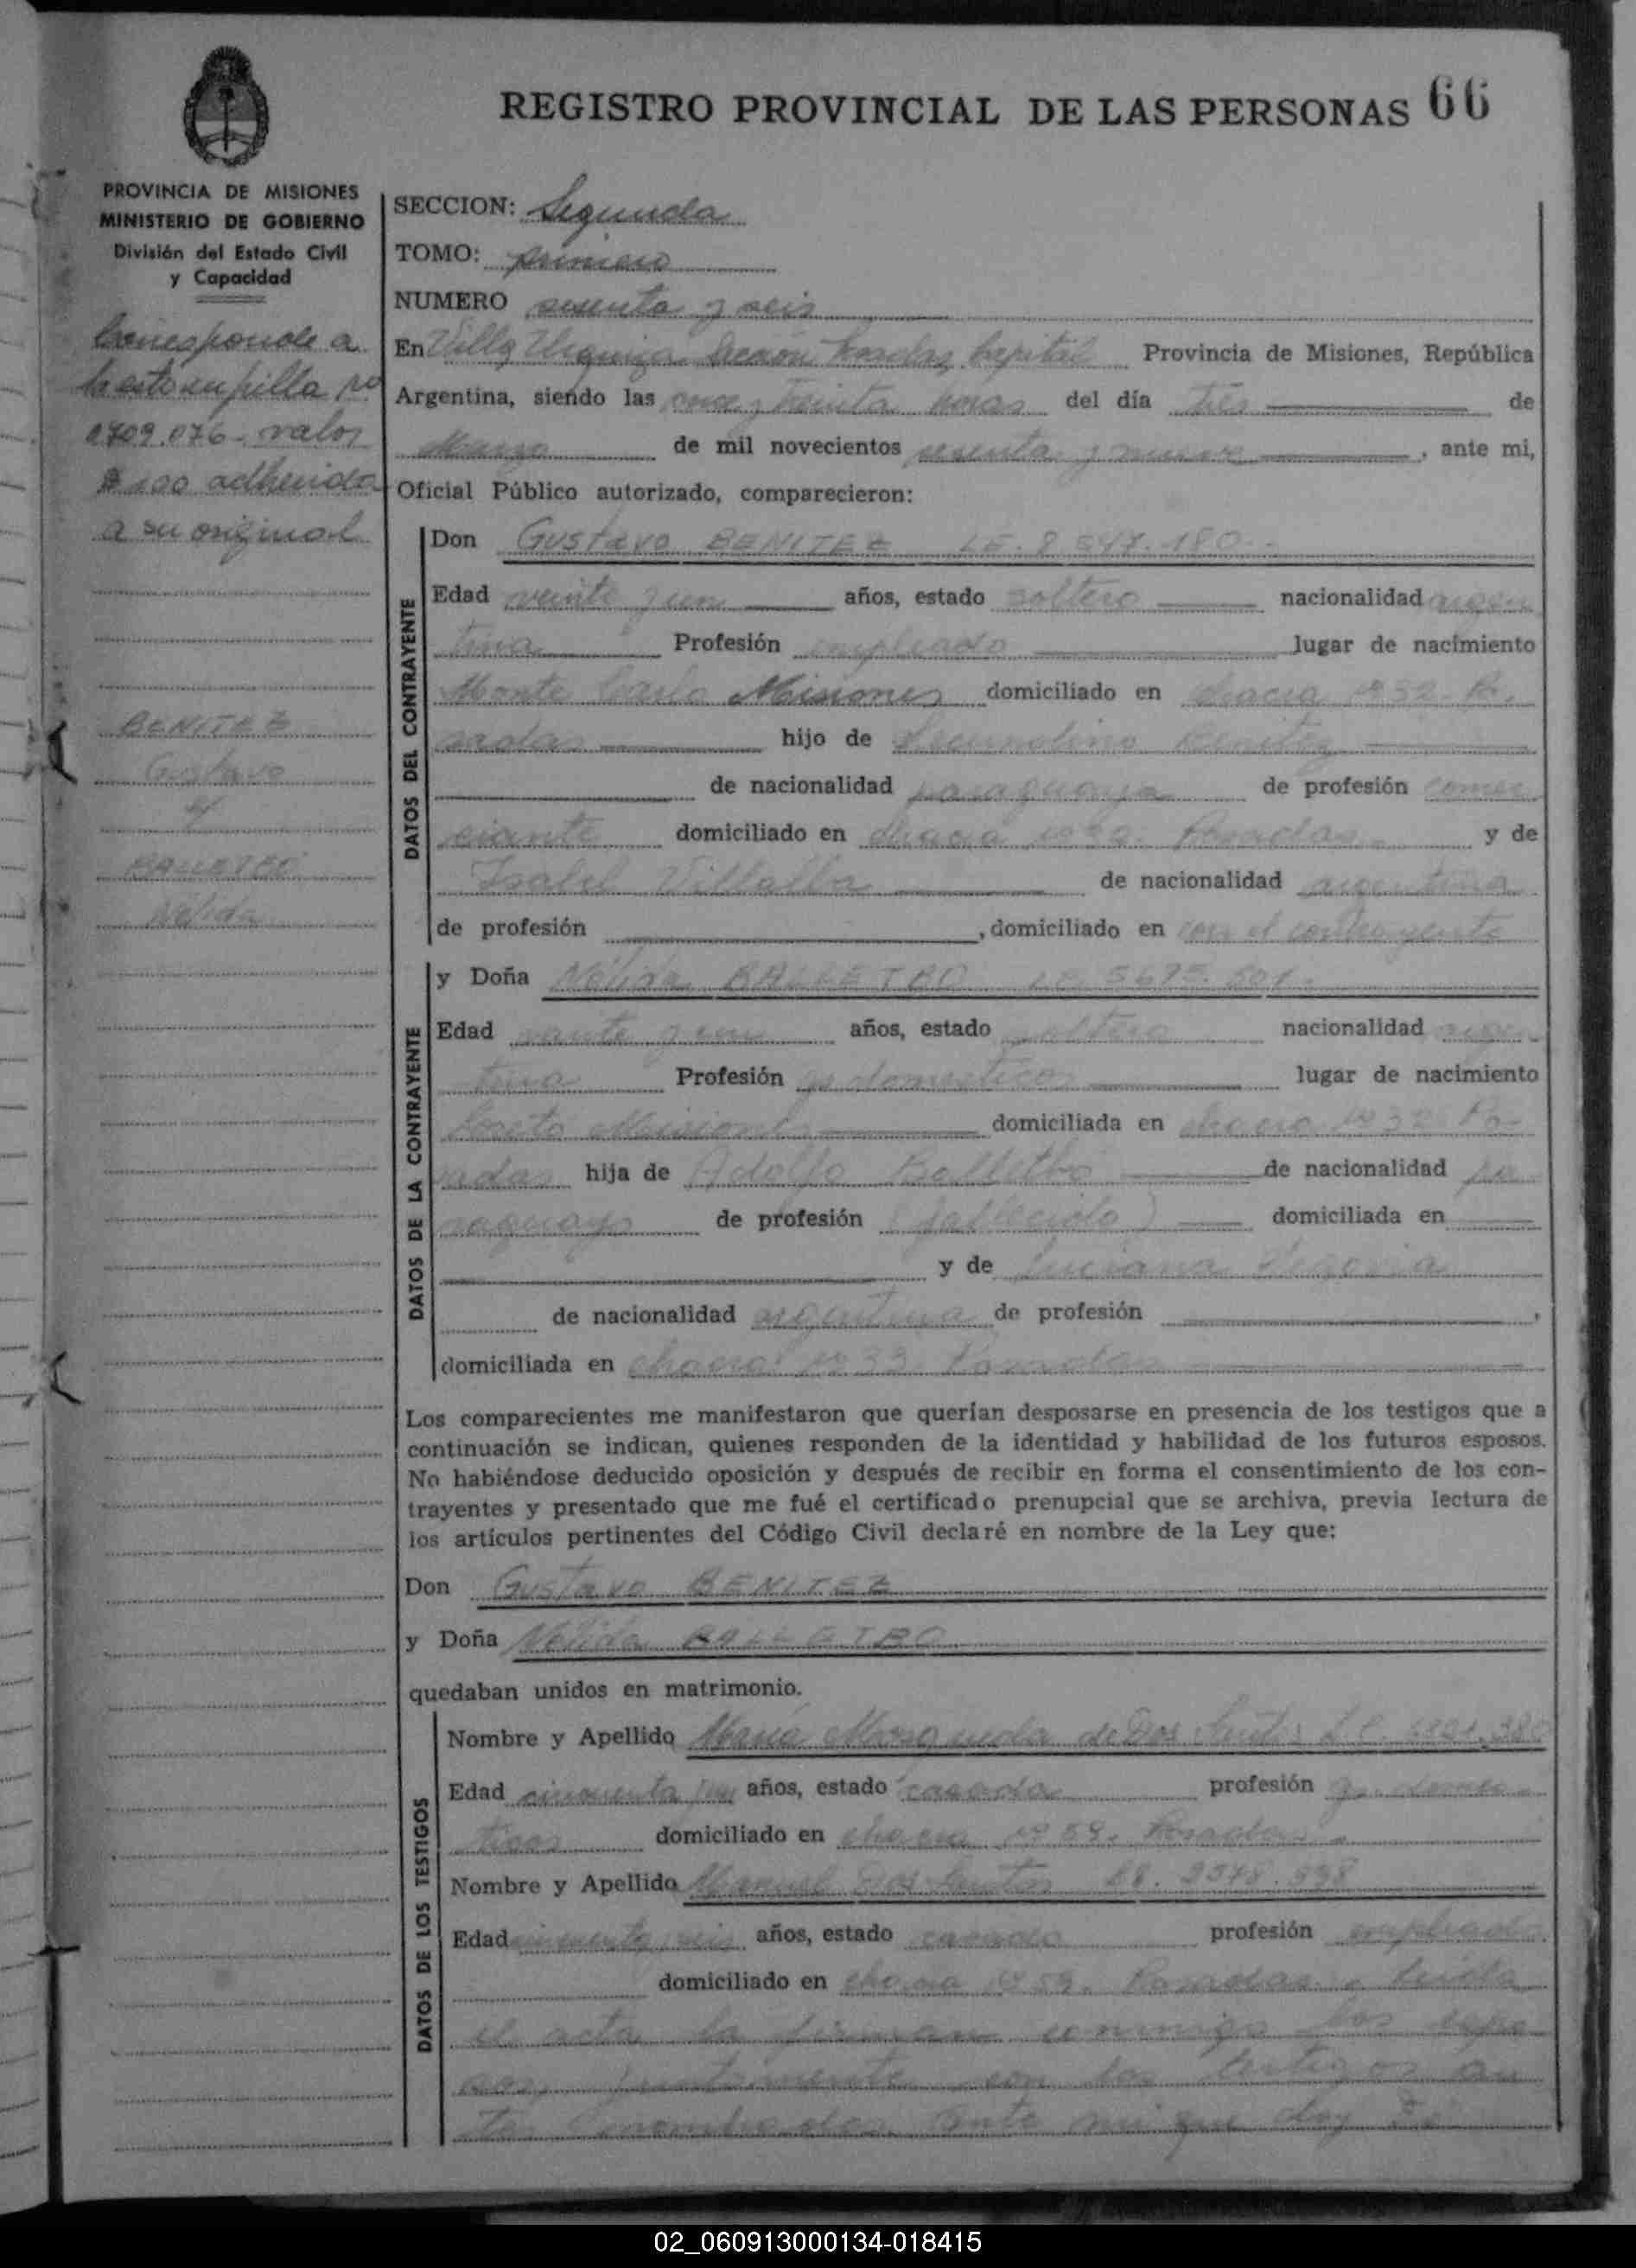 REGISTRO PROVINCIAL DE LAS PERSONAS 66
PROVINCIA DE MISIONES
MINISTERIO DE GOBIERNO
División del Estado Civil
y Capacidad
Corresponde a
la estampilla no
valor
$ 100 adherida
a su original
BENITEZ
Gustavo
y
BALLETBO
Nélida
SECCION: Segunda
TOMO: primero
NUMERO sesenta y seis
En Villa Urquiza Posadas Capital Provincia de Misiones, República
Argentina, siendo las once y treinta horas del día tres de
Marzo de mil novecientos sesenta y nueve, ante mi,
Oficial Público autorizado, comparecieron:
DATOS DEL CONTRAYENTE
Don Gustavo BENITEZ LE. 8 547.180
Edad veinte y un años, estado soltero nacionalidad argen
tina Profesión empleado lugar de nacimiento
Monte Carlo Misiones domiciliado en chacra no 32 Po
sadas hijo de Secundino Benitez
de nacionalidad paraguaya de profesión comer
ciante domiciliado en chacra no Posadas y de
Isabel Villalba de nacionalidad argentina
de profesión , domiciliado en con el contrayente
DATOS DE LA CONTRAYENTE
y Doña Nélida BALLETBO 5675.501
Edad veinte y un años, estado soltera nacionalidad argen
tina Profesión q. domesticos lugar de nacimiento
Loreto Misiones domiciliada en chacra no 32 Po
sadas hija de Adolfo Balletbó de nacionalidad pa
raguayo de profesión (fallecido) domiciliada en
y de Luciana Segovia
de nacionalidad argentina de profesión ,
domiciliada en chacra no 33 Posadas
Los comparecientes me manifestaron que querían desposarse en presencia de los testigos que a
continuación se indican, quienes responden de la identidad y habilidad de los futuros esposos.
No habiéndose deducido oposición y después de recibir en forma el consentimiento de los con-
trayentes y presentado que me fué el certificado prenupcial que se archiva, previa lectura de
los artículos pertinentes del Código Civil declaré en nombre de la Ley que:
Don Gustavo BENITEZ
y Doña Nélida BALLETBO
quedaban unidos en matrimonio.
DATOS DE LOS TESTIGOS
Nombre y Apellido María de Dos Santos L.C.
Edad cincuenta y un años, estado casada profesión q. domes
ticos domiciliado en chacra no 59. Posadas
Nombre y Apellido Manuel Dos Santos
Edad cincuenta y seis años, estado casado profesión empleado
domiciliado en chacra no 59. Posadas. Leída
el acta la firman conmigo los espo
sos, juntamente con los testigos an
tes nombrados. Ante mi que doy Fé
02_060913000134-018415